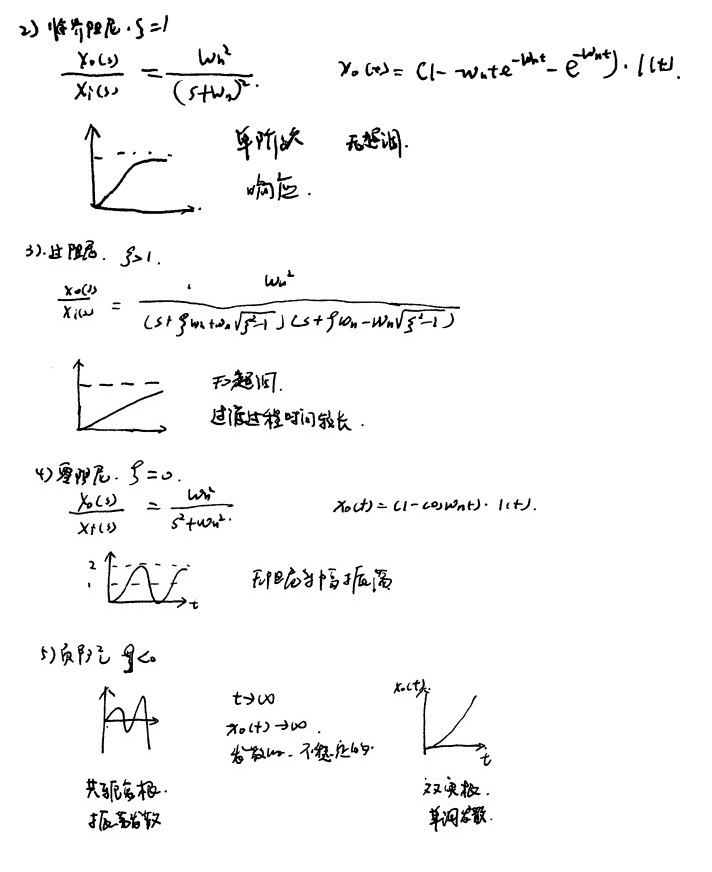 2) 临界阻尼. ξ=1
Xo(s)/Xi(s) = ωn²/(s+ωn)². xo(t) = (1-ωnte^-ωnt - e^-ωnt)·1(t).
单阶跃 无超调.
响应.
3). 过阻尼. ξ>1.
Xo(s)/Xi(s) = ωn²/(s+ξωn+ωn√ξ²-1)(s+ξωn-ωn√ξ²-1)
无超调.
过渡过程时间较长.
4) 零阻尼. ξ=0.
Xo(s)/Xi(s) = ωn²/s²+ωn². xo(t) = (1-cosωnt)·1(t).
2
1
t
无阻尼等幅振荡
5) 负阻尼 ξ<0
t→∞
xo(t)→∞.
发散的. 不稳定的.
xo(t).
t
共轭复根.
振荡发散
双实根.
单调发散.